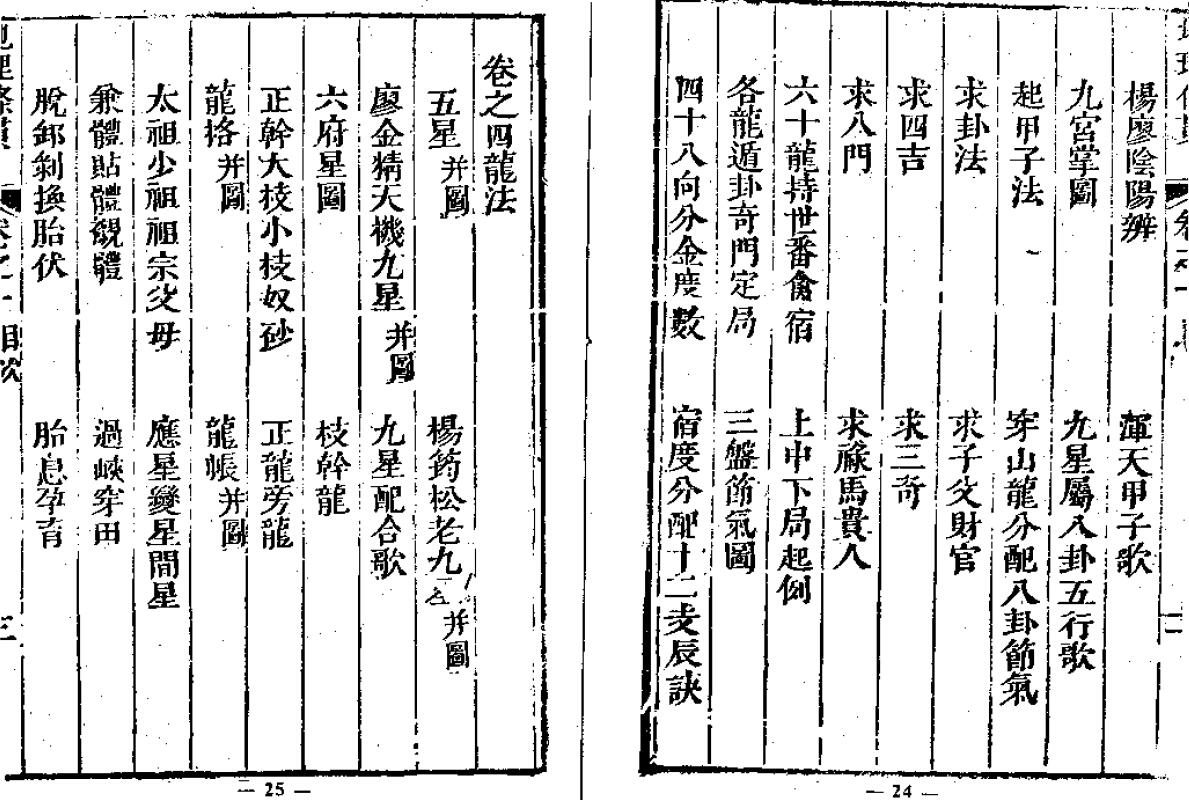 楊廖陰陽辨　渾天甲子歌
九宮掌圖　九星屬八卦五行歌
起甲子法　穿山龍分配八卦節氣
求卦法　求子父財官
求四吉　求三奇
求八門　求祿馬貴人
六十龍持世番禽宿　上中下局起例
各龍遁卦奇門定局　三盤節氣圖
四十八向分金度数　宿度分配十二支辰訣
— 24 —
卷之四龍法
五星并圖　楊筠松老九　并圖
廖金精天機九星并圖　九星配合歌
六府星圖　枝幹龍
正幹大枝小枝奴砂　正龍旁龍
龍格并圖　龍帳并圖
太祖少祖祖宗父母　應星變星間星
兼體貼體襯體　過峽穿田
脫卸剝換胎伏　胎息孕育
三
— 25 —